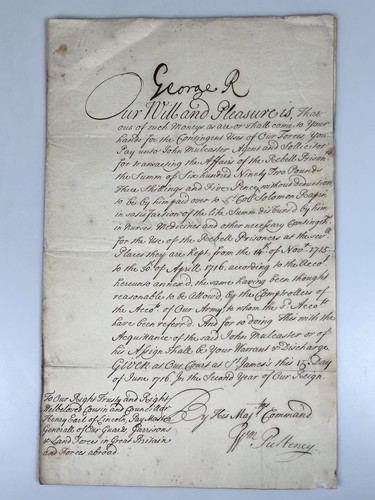 George R
Our Will and Pleasure is, That
out of such Moneys as are or shall come to Your
hands for the Contingent Uses of Our Forces, You
Pay unto John Mulcaster Agent and Sollicitor
for transacting the Affairs of the Rebell Prison
the Summ of Six hundred Ninety Two Pounds
Three Shillings and Five Pence, without deduction
to be by him paid over to Lt. Coll. Solomon Rapin
in satisfaction of the like Summ disbursed by him
in Nurses Medicines and other necessary Conting
for the Use of the Rebell Prisoners at the sev.ll
Places they are Kept, from the 14th of Nov.r 1715
to the 30th of Aprill 1716. according to the Acco.t
hereunto annex'd, the same having been thought
reasonable to be Allow'd, by the Comptrollers of
the Acco.ts of Our Army, to whom the s.d Acco.ts
have been referr'd. And for so doing This with the
Acquittance of the said John Mulcaster or of
his Assigns shall be Your Warrant & Discharge
Given at Our Court at St. James's this 15th Day
of June 1716. In the Second Year of Our Reign
To Our Right Trusty and Right
Welbeloved Cousin and Councillor
Henry Earl of Lincoln, Pay Master
Generall of Our Guards, Garrisons
& Land Forces in Great Britain
and Forces abroad
By His Maj.tys Command
Wm. Pulteney